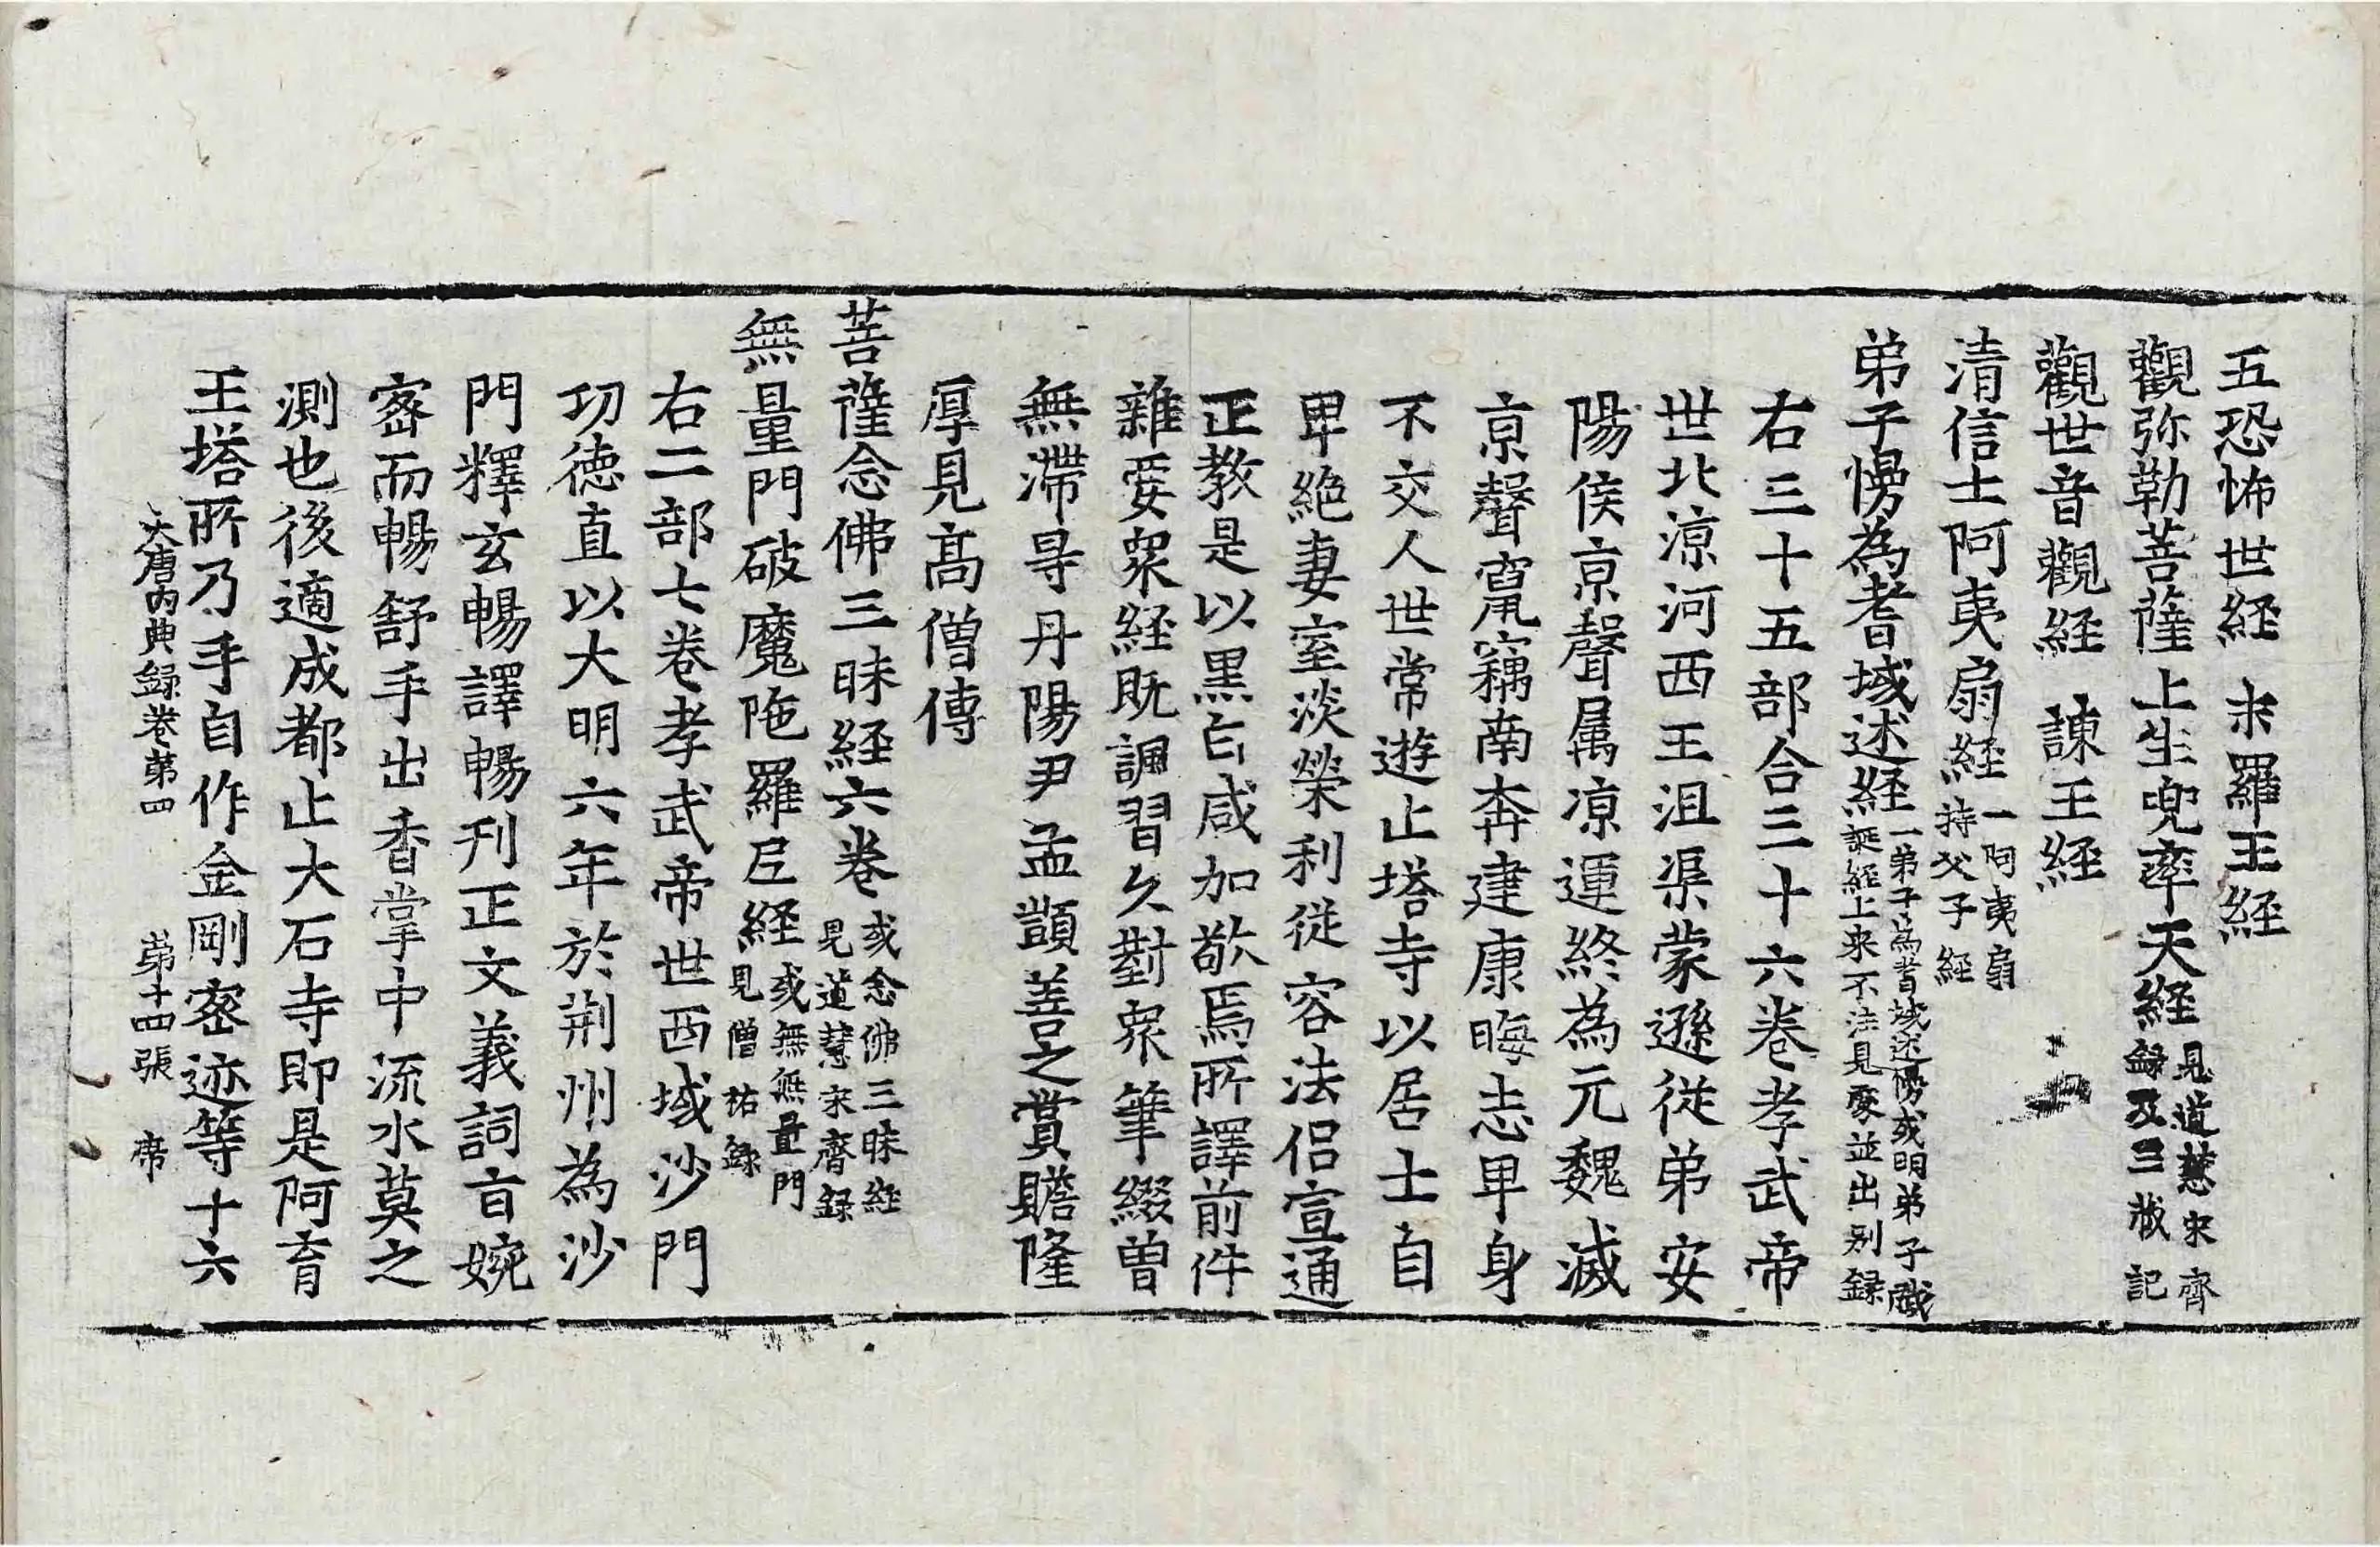 五恐怖世経 末羅王経
觀弥勒菩薩上生兜率天経 見道慧宋齊録及三蔵記
觀世音觀経 諫王経
清信士阿夷扇経 一阿夷扇持父子経
弟子慢為耆域述経 一弟子為耆域述慢或明弟子戲誕経上来不注見處並出别録
右三十五部合三十六卷孝武帝
世北涼河西王沮渠蒙遜従弟安
陽侯亰聲属凉運終為元魏滅
亰聲竄竊南奔建康晦志卑身
不交人世常遊止塔寺以居士自
卑絶妻室淡榮利従容法侣宣通
正教是以黒白咸加敬焉所譯前件
雜要衆経既諷習久對衆筆綴曽
無滯㝵丹陽尹孟顗善之賞贍隆
厚見髙僧傳
菩薩念佛三昧経六卷 或念佛三昧経見道慧宋齊録
無量門破魔陁羅尼経 或無無量門見僧祐録
右二部七卷孝武帝世西域沙門
功徳直以大明六年於荆州為沙
門釋玄暢譯暢刋正文義詞㫖婉
宻而暢舒手出香掌中流水莫之
測也後適成都止大石寺即是阿育
王塔所乃手自作金剛宻迹等十六
大唐内典録卷第四 第十四張 席